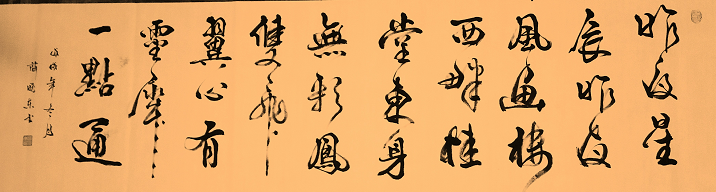 昨夜星
辰昨夜
風畫樓
西畔桂
堂東身
無彩鳳
雙飛
翼心有
靈犀
一點通
戊戌年冬